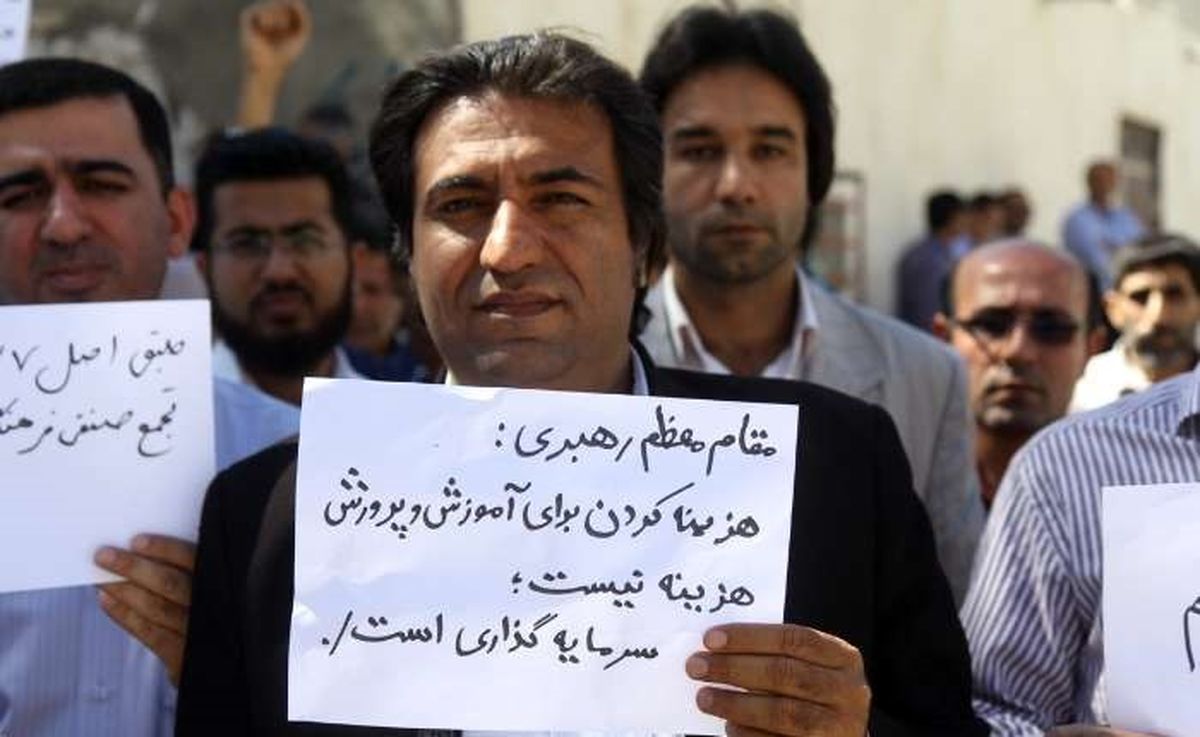 مقام معظم رهبری:
هزینه کردن برای آموزش و پرورش
هزینه نیست؛
سرمایه گذاری است/.
طبق اصل ۲۷
تجمع صنفی